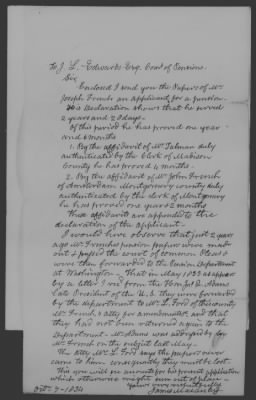 To J. L. Edwards Esq. Com'r of Pensions
Sir
Enclosed I send you the Papers of Mr
Joseph French an applicant for a pension
His Declaration shows that he served
2 years and 20 days-
Of this period he has proved one year
and 6 months
1. By the affidavit of Mr Talman duly
authenticated by the Clerk of Madison
County he has proved 4 months-
2. By the affidavit of Mr John French
of Amsterdam Montgomery County duly
authenticated by the clerk of Montgomery
he has proved one year & 2 months
These affidavits are appended to the
declaration of the applicant-
I would here observe that just 2 years
ago Mr French pension papers were made
out & passed the court of common Pleas &
were then forwarded to the Pension Department
at Washington - That in May 1833 as appears
by a letter from the Hon Jno Q. Adams
late President of the U.S. they were forwarded
by the department to Mr L. Ford of this county
Mr French's atty for amendments and that
they had not been returned again to the
Department - Mr Adams was addressed by
Mr French on the subject last May-
The atty Mr L. Ford says the papers never
came to him consequently they must be lost.
This you will see accounts for his present application
which otherwise might seem out of place-
Yours very respectfully
Oct. 7 - 1834
James